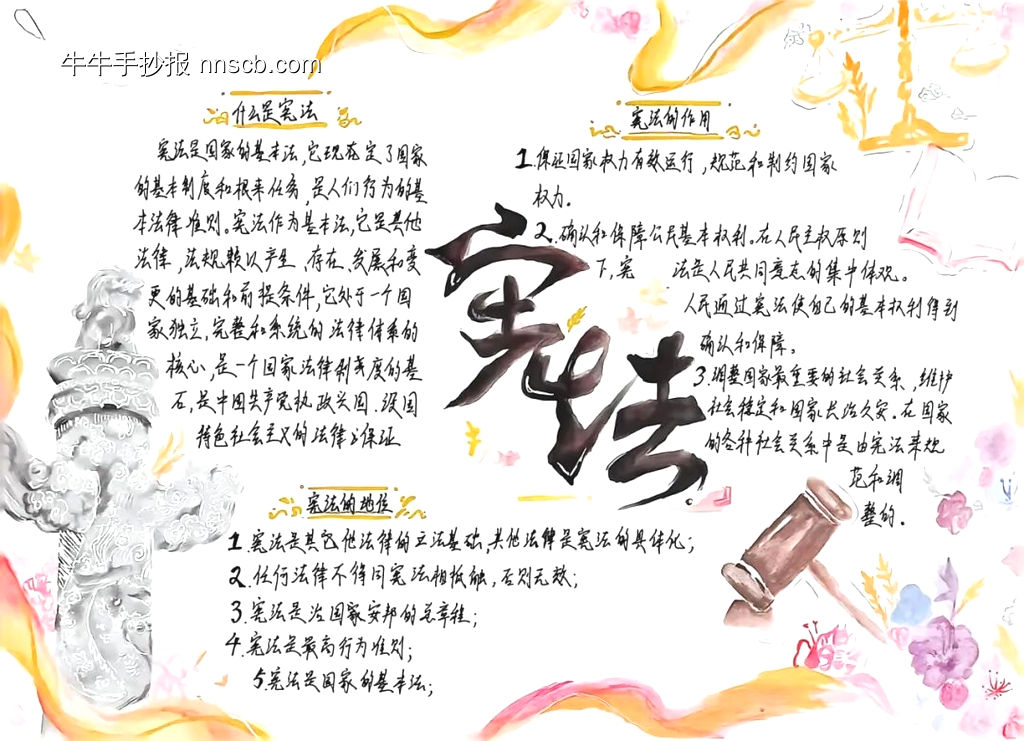 牛牛手抄报 nnscb.com
什么是宪法
宪法是国家的基本法,它规定了国家
的基本制度和根本任务,是人们行为的基
本法律准则。宪法作为基本法,它是其他
法律,法规赖以产生、存在、发展和变
更的基础和前提条件,它处于一个国
家独立,完整和系统的法律体系的
核心,是一个国家法律制度的基
石,是中国共产党执政兴国、
特色社会主义的法律保证
宪法的作用
1.保证国家权力有效运行,规范和制约国家
权力.
2.确认和保障公民基本权利。在人民主权原则
下,宪 法是人民共同意志的集中体现。
人民通过宪法使自己的基本权利得到
确认和保障。
3.调整国家最重要的社会关系、维护
社会稳定和国家长治久安。在国家
的各种社会关系中是由宪法来规
范和调
整的.
宪法
宪法的地位
1.宪法是其它他法律的立法基础,其他法律是宪法的具体化;
2.任何法律不得同宪法相抵触,否则无效;
3.宪法是治国家安邦的总章程;
4.宪法是最高行为准则;
5.宪法是国家的基本法;